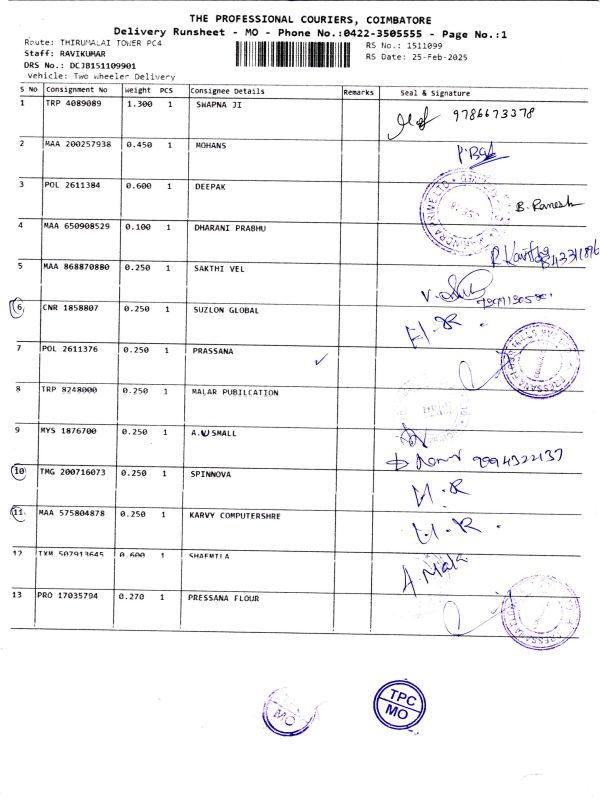 THE PROFESSIONAL COURIERS, COIMBATORE
Delivery Runsheet - MO - Phone No.:0422-3505555 - Page No.:1
Route: THIRUMALAI TOWER PC4
RS No.: 1511099
Staff: RAVIKUMAR
RS Date: 25-Feb-2025
DRS No.: DCJB151109901
Vehicle: Two Wheeler Delivery
S No Consignment No Weight PCS Consignee Details Remarks Seal & Signature
1 TRP 4089089 1.300 1 SWAPNA JI 9786673378
2 MAA 200257938 0.450 1 MOHANS
3 POL 2611384 0.600 1 DEEPAK B. Ramesh
4 MAA 650908529 0.100 1 DHARANI PRABHU
5 MAA 868870880 0.250 1 SAKTHI VEL
6 CNR 1858807 0.250 1 SUZLON GLOBAL H.R.
7 POL 2611376 0.250 1 PRASSANA ✓
8 TRP 8248000 0.250 1 MALAR PUBILCATION
9 MYS 1876700 0.250 1 A.V SMALL
9994322137
10 TMG 200716073 0.250 1 SPINNOVA H.R
11 MAA 575804878 0.250 1 KARVY COMPUTERSHRE H.R.
12 IXM 507913645 0.600 1 SHAFMILA A. Mala
13 PRO 17035794 0.270 1 PRESSANA FLOUR
MO
TPC
MO